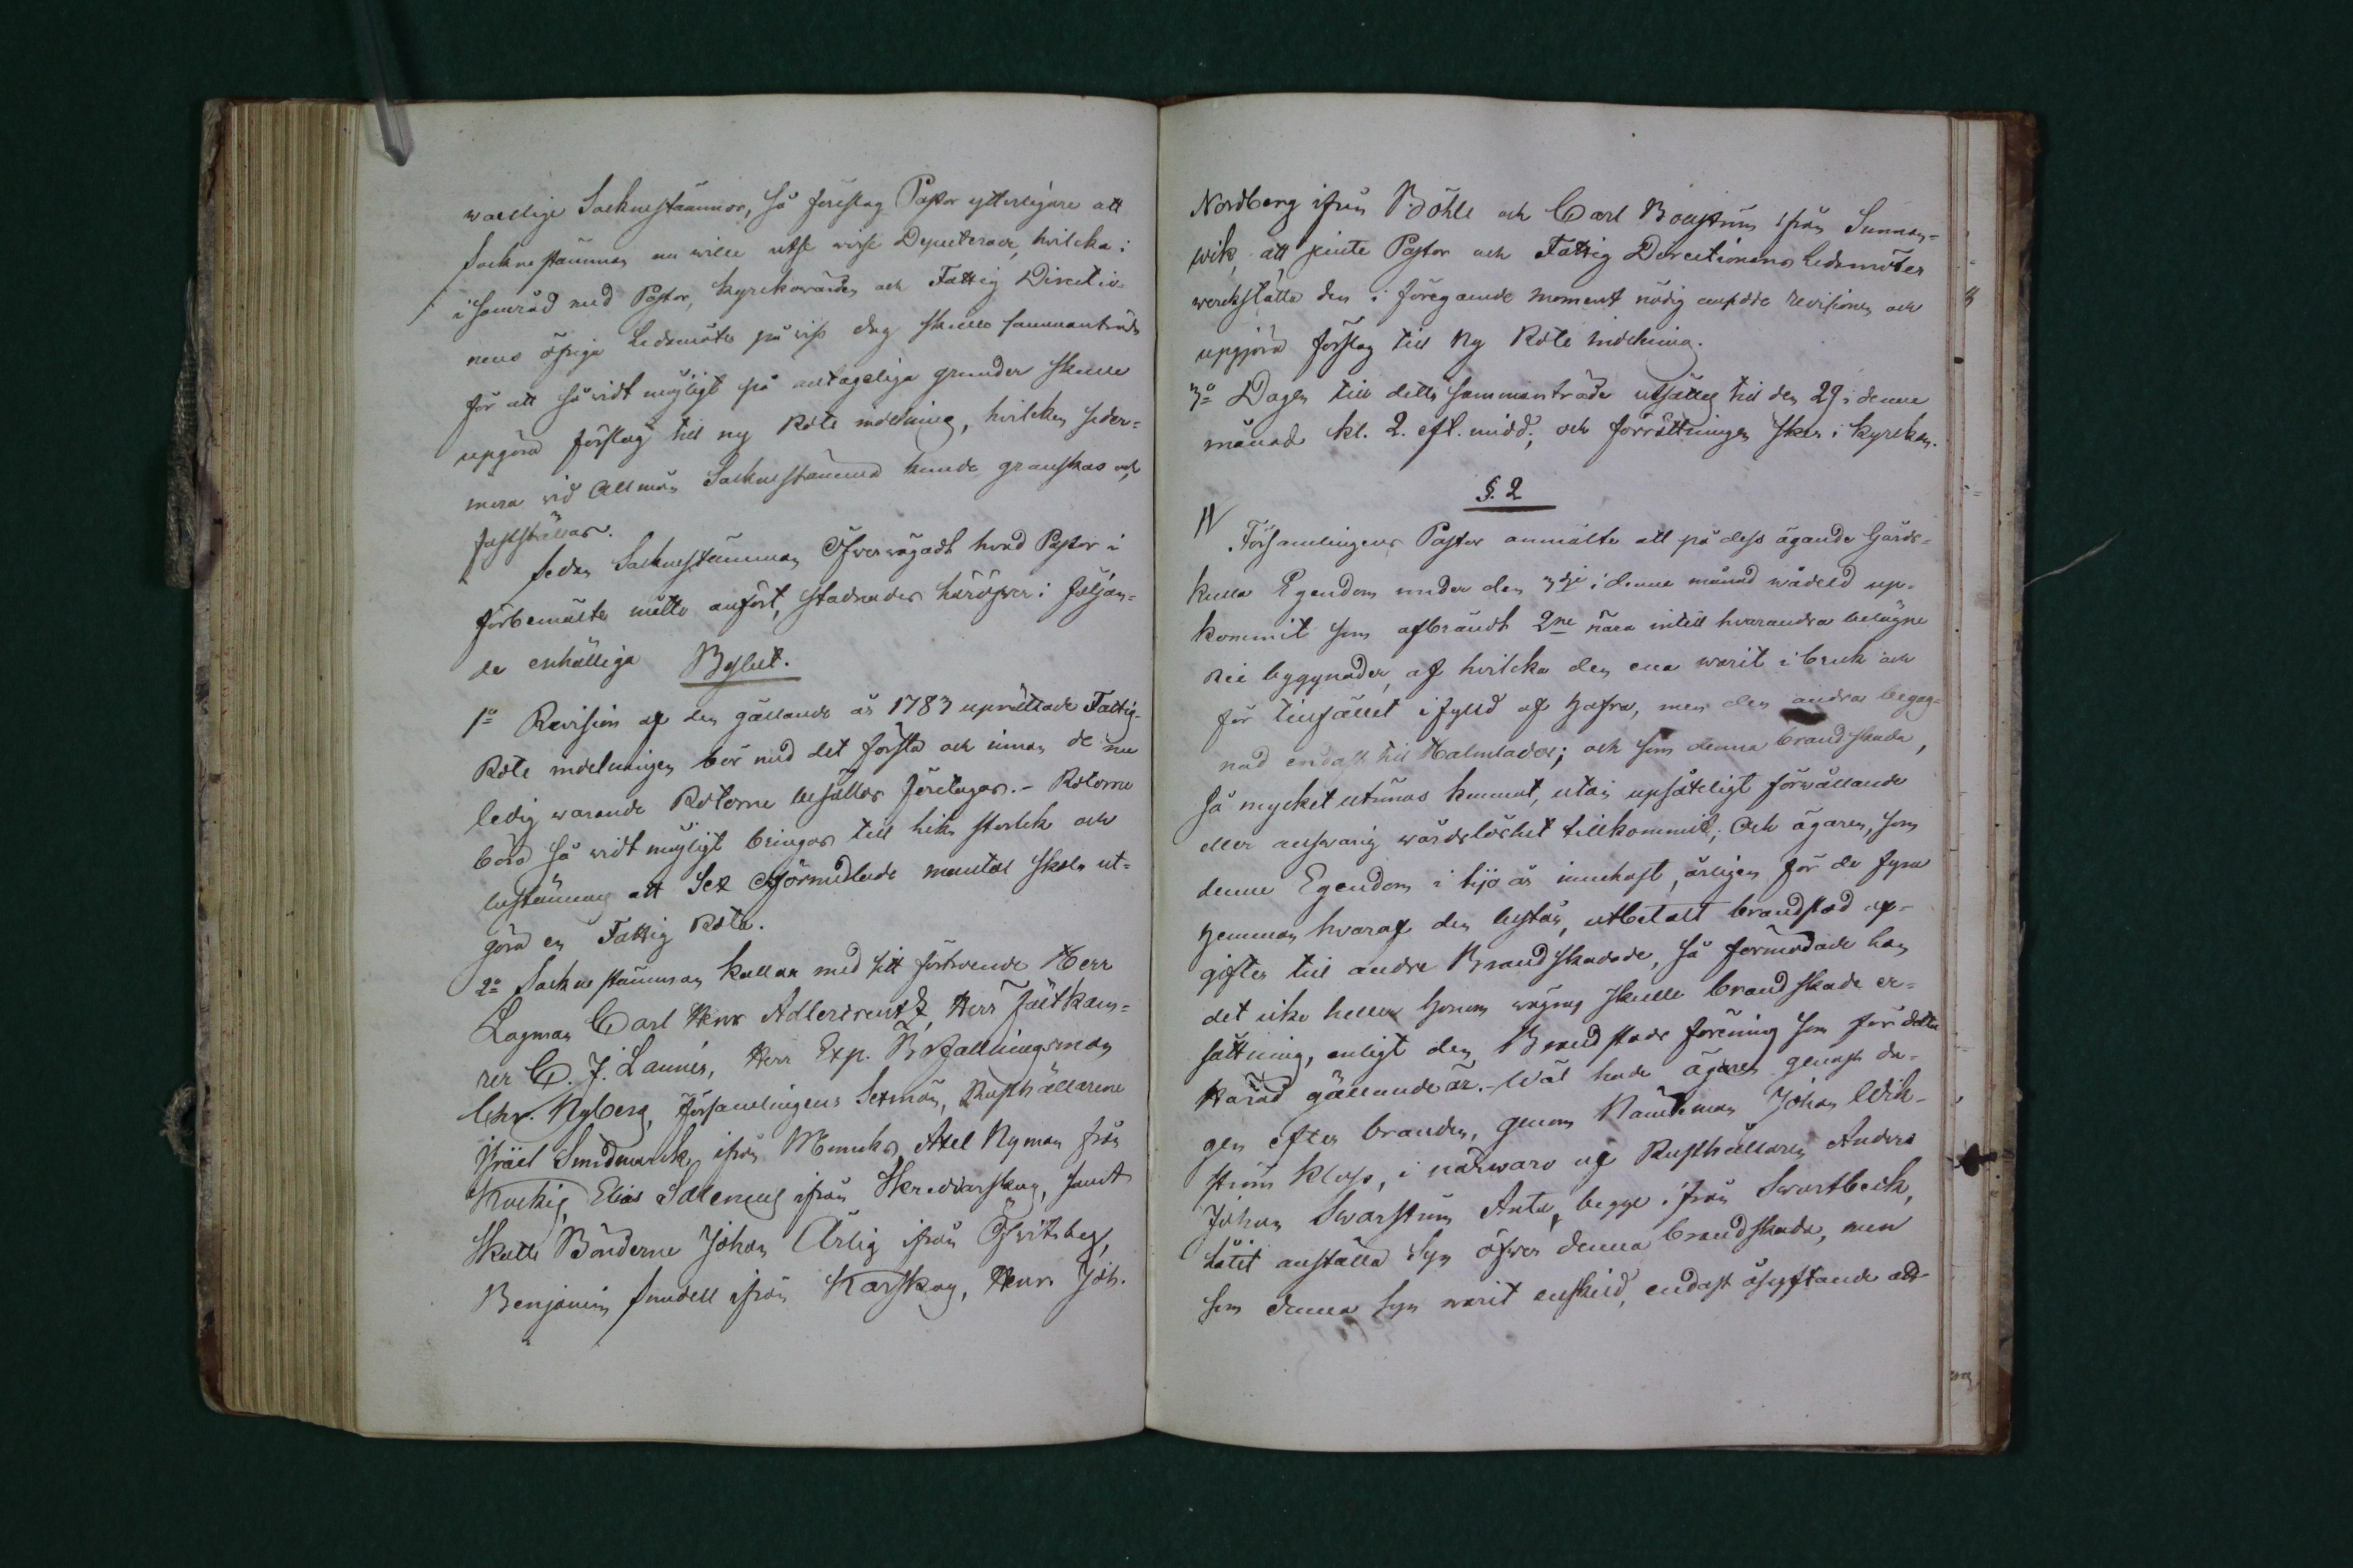 warlige Sockenstämmor, så föreslog Pastor ytterligare att
Sockenstämman nu wille utse wisse Deputerade, hvilcka i
i samråd med Pastor, kyrckovärden och Fattig Directio-
nens öfriga Ledamöter på wiss dag skulle sammanträda
för att så vidt möjligt på antageliga grunder skulle
upgöra förslag till ny Rote indelning, hvilcken seder-
mera vid Allmän Sockenstämma kunde granskas och
fastställas.
Sedan Sockenstämman Öfvervägadt hvad Pastor i
förbemälte måtto anfört, stadnades häröfver i följan-
de enhälliga Beslut.
1o Revision af den gällande år 1783 uprättade Fattig-
Rote indelningen bör med det första och innan de nu
ledig warande Roterne besättas företagas. - Roterne
böra så vidt möjligt bringas till lika storlek och
bestämmes att Sex Oförmedlade mantal skola ut-
göra en Fattig Rote.
2o Sockenstämman kallar med sitt förtroende Herr
Lagman Carl Henr Adlercreutz, Herr Fältkam-
rer C. J. Lannér, Herr Exp. Befallningsman
Chr. Nyberg, församlingens Sexmän, Rusthållarene
Israel Smedmarck ifrån Muncks, Axel Nyman från
Kockig, Elias Idlemus ifrån Skreddarskog, samt
Skatte Bönderne Johan Ärlig ifrån Öfvitsbeg,
Benjamin Sundell ifrån Karskog, Henr Joh.
Nordberg ifrån Böhle och Carl Bouström ifrån Sunnan-
wik, att jemte Pastor och Fattig Directionens Ledamöter
werckställa den i föregående moment nödig ansedde revisionen och
upgjöra förslag till Ny Rote indelning.
3o Dagen till detta sammanträde utsattes till den 29 i denne
månad kl. 2. eft. midd; och förrättningen sker i Kyrckan.
§. 2
Församlingens Pastor anmälte att på dess ägande Gårds-
kulla Egendom under den 3dje i denna månad wådeld up-
kommit som afbrändt 2ne nära intill hvarandra belägne
Rie byggnader, af hvilcka den ena warit i bruk och
för tillfället ifylld af Hafra, men den andra begag-
nad endast till Halmlador; och som denna brandskada,
så mycket utrönas kunnat, utan upsåteligt förwållande
eller answarig wårdslöshet tillkommit; Och ägaren, som
denna Egendom i tijo år innehaft, årligen för de fyra
Hemman hvaraf den består, utbetalt brandstod af-
gifter till andre Brandskadade, så förmodade han
det icke heller honom wägras skulle brandskade er-
sättning, enligt den Brandstods förening som för detta
Härad gällande är. - Wäl hade ägaren genast da-
gen efter branden, genom Nämdeman Johan Wik-
ström Kloss, i närwaro af Rusthållaren Anders
Johan Swarström Anta, begge ifrån Swartbeck,
låtit anställa Syn öfwer denna brandskada, men
som denna syn warit enskild, endast åsyftande att